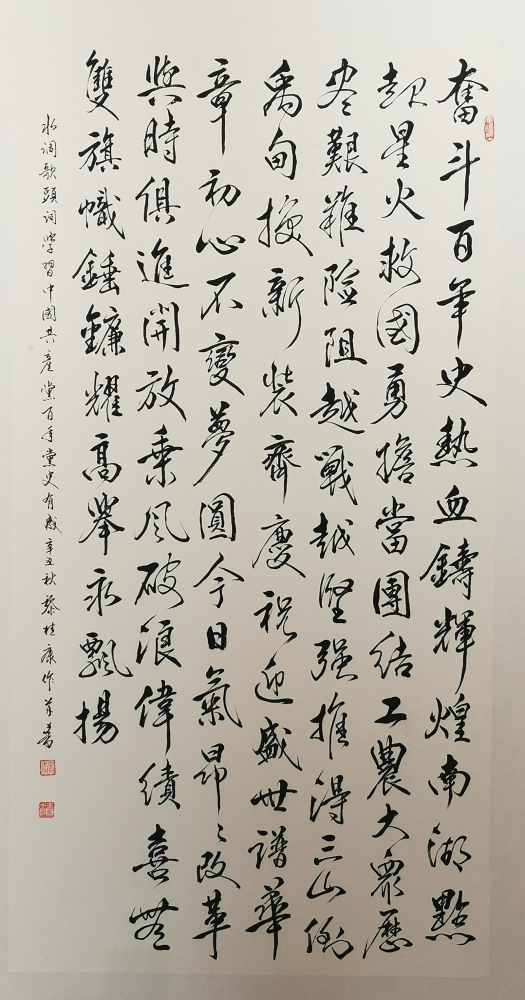 奮斗百年史熱血鑄輝煌南湖點
起星火救國勇擔當團结工農大衆歷
盡艱難险阻越戰越堅强推得三山倒
禹甸換新裝齊慶祝迎盛世譜華
章初心不變夢圓今日氣昂〻改革
與時俱進開放乘风破浪偉績喜無
雙旗幟錘鐮耀高舉永飄揚
水调歌頭词學習中國共產黨百年黨史有感辛丑秋黎桂康作并書